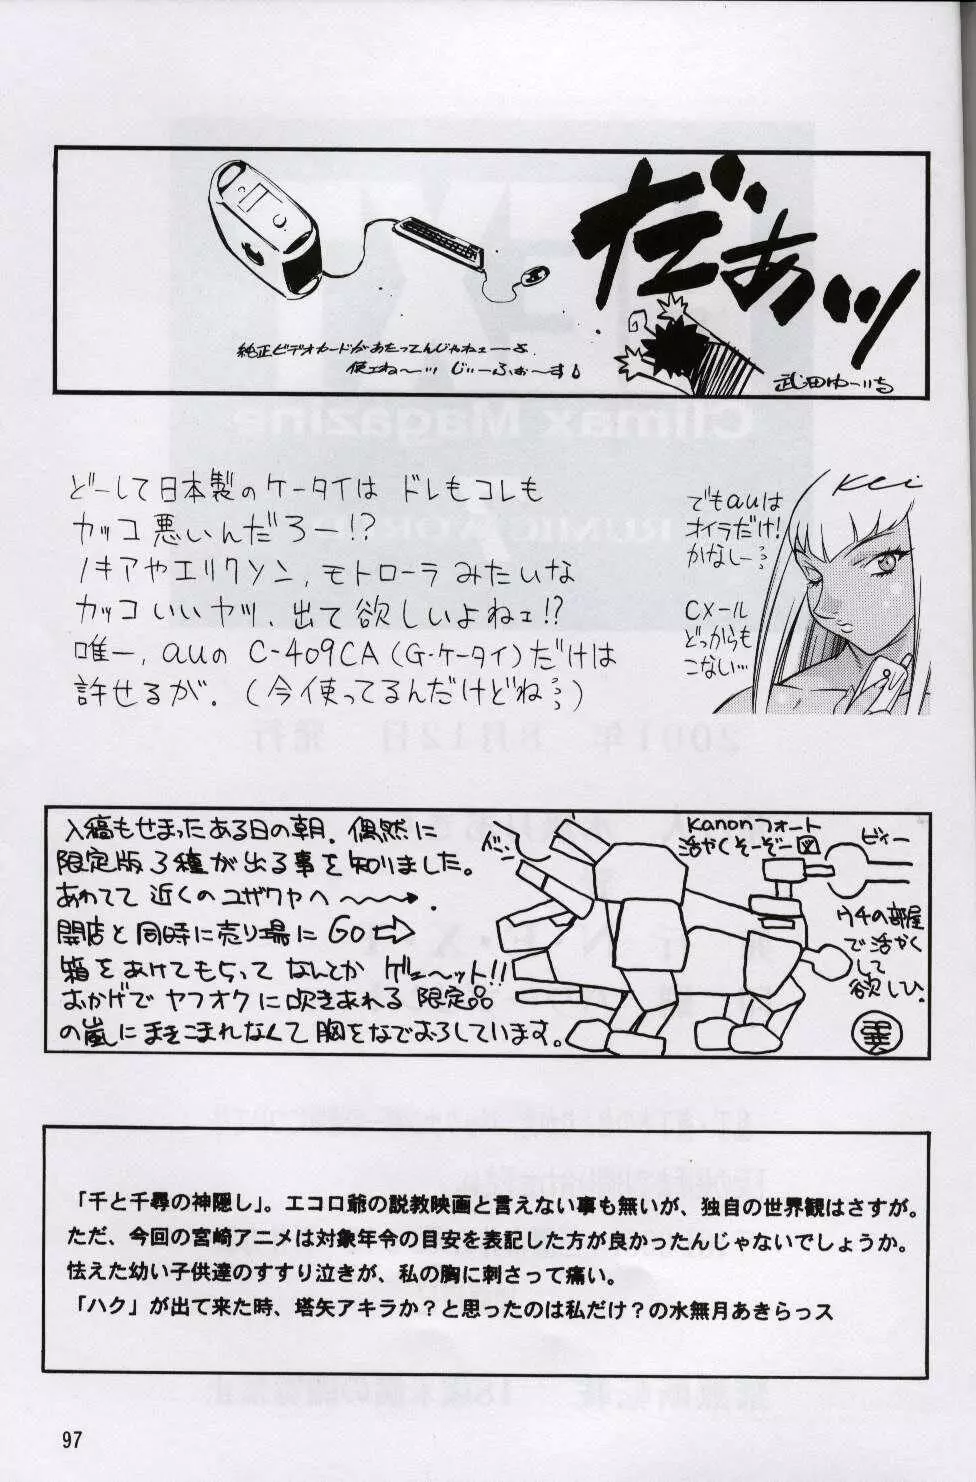 だぁッ
純正ビデオカードがあたってんじゃねェーよ
使エね〜ッ じぃーふぉ〜す
武田ゆーいち
どーして日本製のケータイは ドレもコレも
カッコ悪いんだろー!?
ノキアやエリクソン, モトローラ みたいな
カッコいいヤツ、出て欲しいよねェ!?
唯一, auの C-409CA (G・ケータイ) だけは
許せるが. (今使ってるんだけどね…)
Kei
でもauは
オイラだけ!
かなしー…
Cメール
どっからも
こない…
入稿もせまったある日の朝. 偶然に
限定版3種が出る事を知りました。
あわてて 近くのユザワヤへ
開店と同時に売り場に GO⇨
箱をあけてもらって なんとか ゲェ〜ット!!
おかげで ヤフオクに吹きあれる 限定品
の嵐にまきこまれなくて 胸をなでおろしています。
Kanonフォート
活やくそーぞー図
ビィー
ウチの部屋
で活やく
して
欲しひ。
「千と千尋の神隠し」。エコロ爺の説教映画と言えない事も無いが、独自の世界観はさすが。
ただ、今回の宮崎アニメは対象年令の目安を表記した方が良かったんじゃないでしょうか。
怯えた幼い子供達のすすり泣きが、私の胸に刺さって痛い。
「ハク」が出て来た時、塔矢アキラか？と思ったのは私だけ？の水無月あきらっス
97